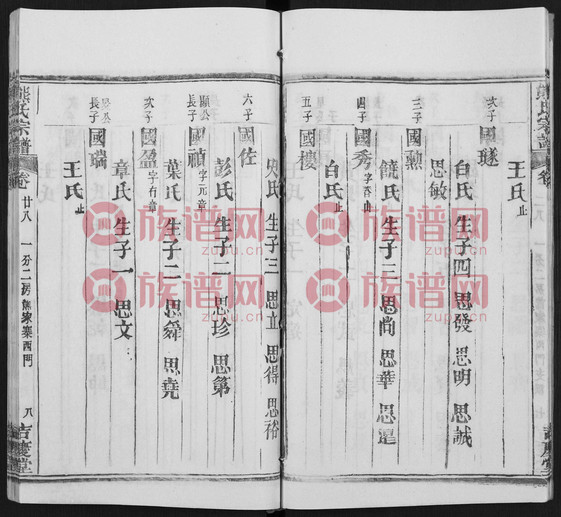 熊氏宗譜
卷
吉慶堂
王氏 止
次子 國璲
白氏 生子四 思發 思明 思誠
思敏
三子 國勲
饒氏 生子三 思尚 思華 思選
四子 國秀 字吾山
白氏 止
五子 國樓
六子 國佐
史氏 生子三 思立 思得 思裕
顯公長子 國禎 字元章
彭氏 生子二 思珍 思第
次子 國盈 字有章
葉氏 生子二 思舜 思堯
章氏 生子一 思文
公長子 國瑞
王氏 止
熊氏宗譜
卷廿八 一分二房熊家寨西門 八 吉慶堂
族谱网
zupu.cn
族谱网
zupu.cn
族谱网
zupu.cn
族谱网
zupu.cn